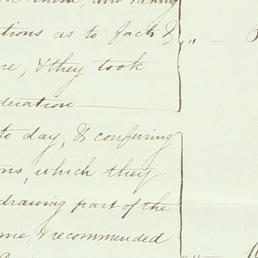 them, and taking
tions as to facts &
re, & they took
deration
to day, & confering
ons, which they
drawing part of the
me, & recommended